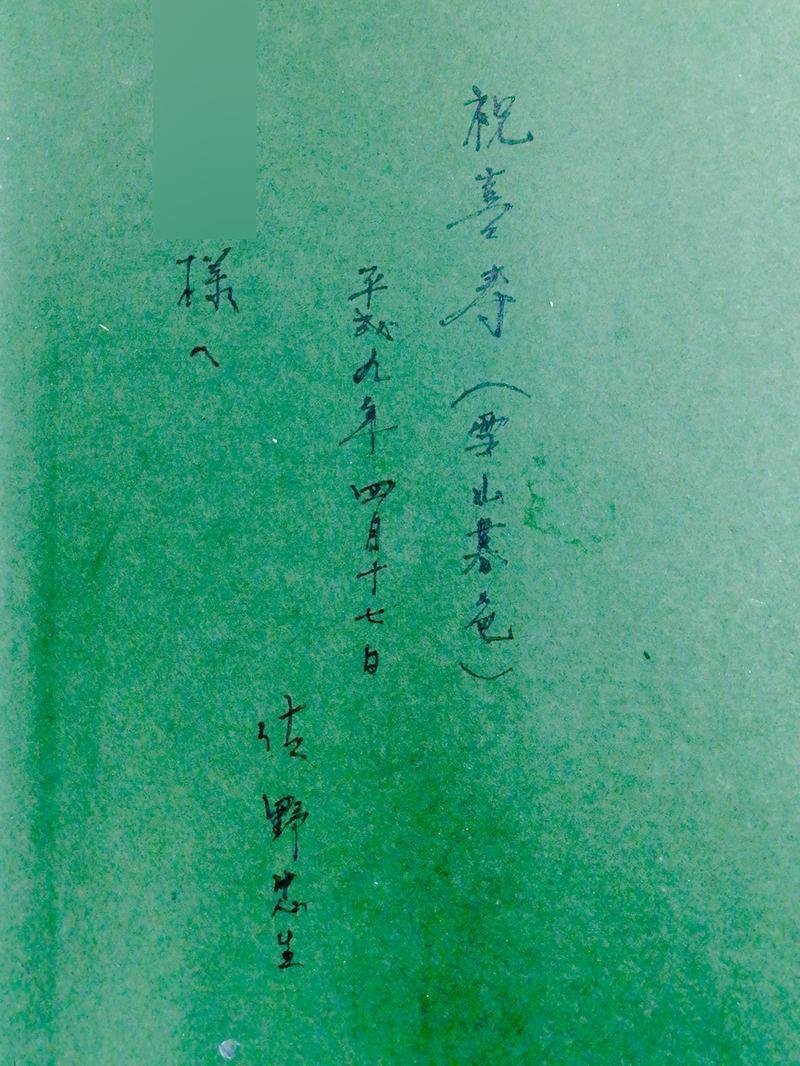 祝喜寿（雪山暮色）
平成九年四月十七日
佐野忠生
様へ